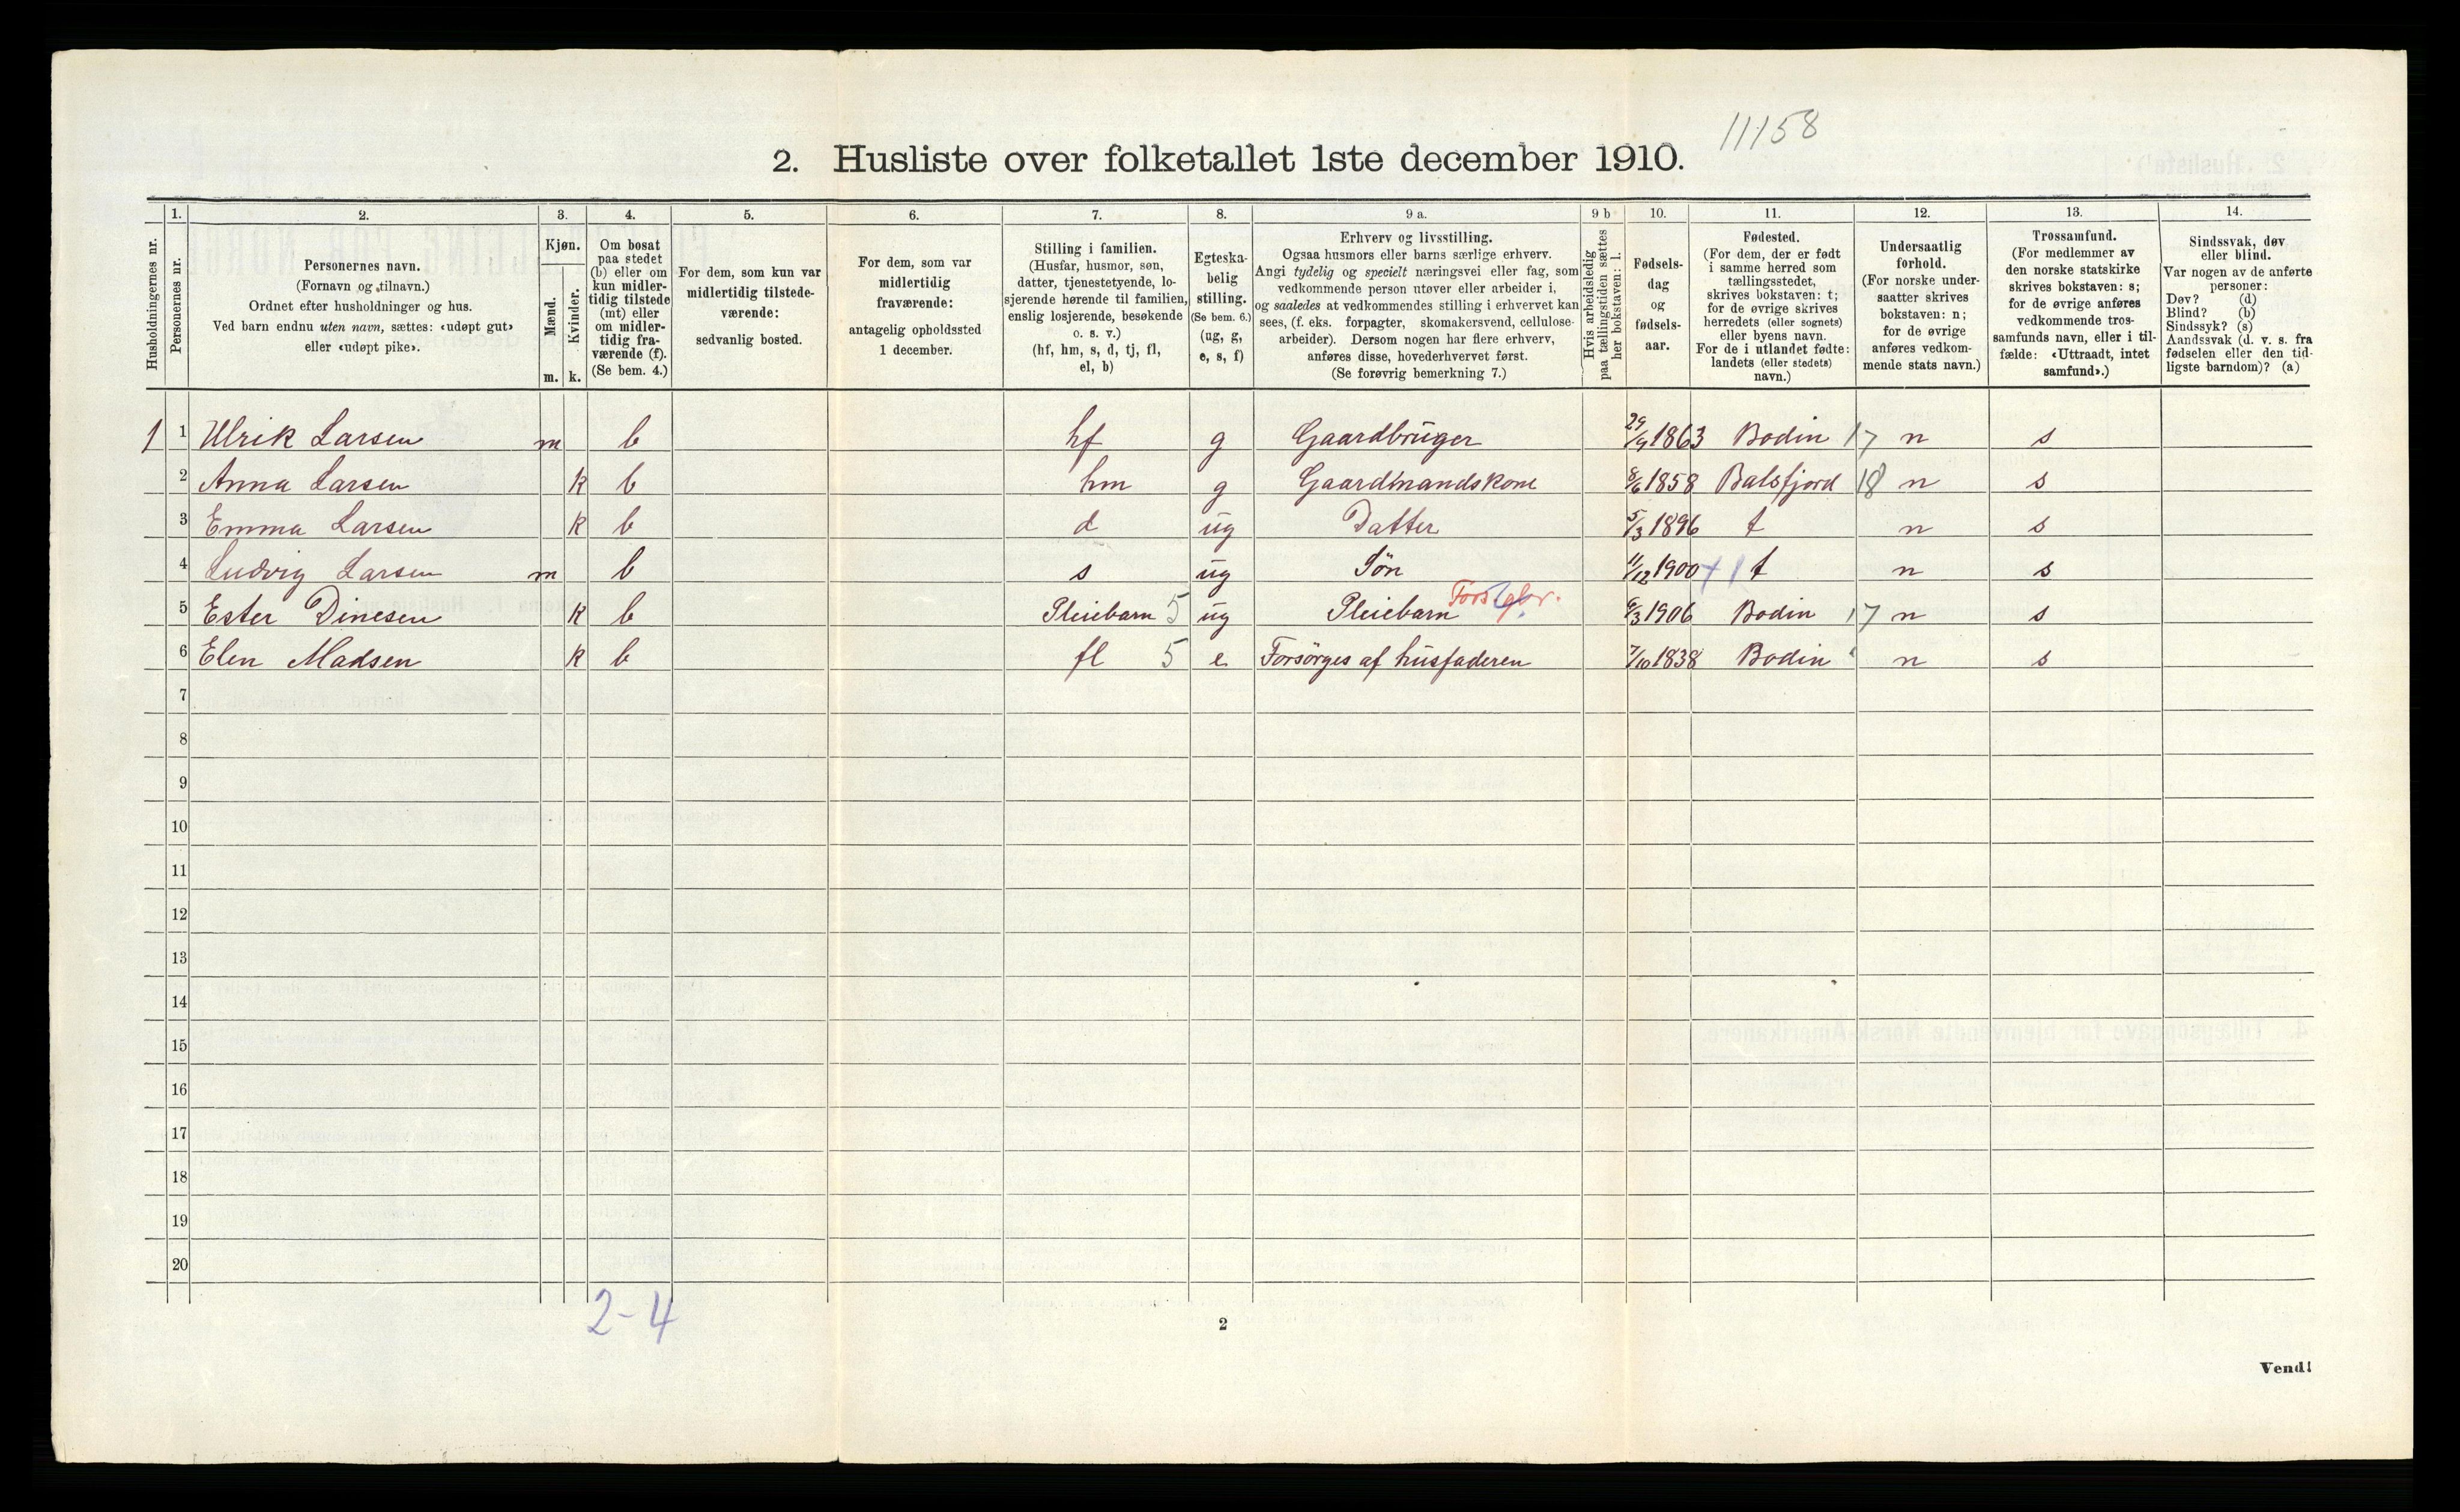 11158
2. Husliste over folketallet 1ste december 1910.
Husholdningernes nr.
1. Personernes nr.
2. Personernes navn.
(Fornavn og tilnavn.)
Ordnet efter husholdninger og hus.
Ved barn endnu uten navn, sættes: «udøpt gut»
eller «udøpt pike».
3. Kjøn.
Mænd. Kvinder.
m. k.
4. Om bosat
paa stedet
(b) eller om
kun midler-
tidig tilstede
(mt) eller
om midler-
tidig fra-
værende (f).
(Se bem. 4.)
5. For dem, som kun var
midlertidig tilstede-
værende:
sedvanlig bosted.
6. For dem, som var
midlertidig
fraværende:
antagelig opholdssted
1 december.
7. Stilling i familien.
(Husfar, husmor, søn,
datter, tjenestetyende, lo-
sjerende hørende til familien,
enslig losjerende, besøkende
o. s. v.)
(hf, hm, s, d, tj, fl,
el, b)
8. Egteska-
belig
stilling.
(Se bem. 6.)
(ug, g,
e, s, f)
9 a. Erhverv og livsstilling.
Ogsaa husmors eller barns særlige erhverv.
Angi tydelig og specielt næringsvei eller fag, som
vedkommende person utøver eller arbeider i,
og saaledes at vedkommendes stilling i erhvervet kan
sees, (f. eks. forpagter, skomakersvend, cellulose-
arbeider). Dersom nogen har flere erhverv,
anføres disse, hovederhvervet først.
(Se forøvrig bemerkning 7.)
9 b Hvis arbeidsledig
paa tællingstiden sættes
her bokstaven: l.
10. Fødsels-
dag
og
fødsels-
aar.
11. Fødested.
(For dem, der er født
i samme herred som
tællingsstedet,
skrives bokstaven: t;
for de øvrige skrives
herredets (eller sognets)
eller byens navn.
For de i utlandet fødte:
landets (eller stedets)
navn.)
12. Undersaatlig
forhold.
(For norske under-
saatter skrives
bokstaven: n;
for de øvrige
anføres vedkom-
mende stats navn.)
13. Trossamfund.
(For medlemmer av
den norske statskirke
skrives bokstaven: s;
for de øvrige anføres
vedkommende tros-
samfunds navn, eller i til-
fælde: «Uttraadt, intet
samfund».)
14. Sindssvak, døv
eller blind.
Var nogen av de anførte
personer:
Døv? (d)
Blind? (b)
Sindssyk? (s)
Aandssvak (d. v. s. fra
fødselen eller den tid-
ligste barndom)? (a)
1 1 Ulrik Larsen m b hf g Gaardbruger 29/9 1863 Bodin 17 n s
2 Anna Larsen k b hm g Gaardmandskone 8/6 1858 Balsfjord 18 n s
3 Emma Larsen k b d ug Datter 5/3 1896 t n s
4 Ludvig Larsen m b s ug Søn 11/12 1900 t n s
5 Ester Dinesen k b Pleiebarn 5 ug Pleiebarn 6/3 1906 Bodin 17 n s
6 Elen Madsen k b fl 5 e Forsørges af husfaderen 7/10 1838 Bodin n s
7
8
9
10
11
12
13
14
15
16
17
18
19
20
2-4
2
Vend!